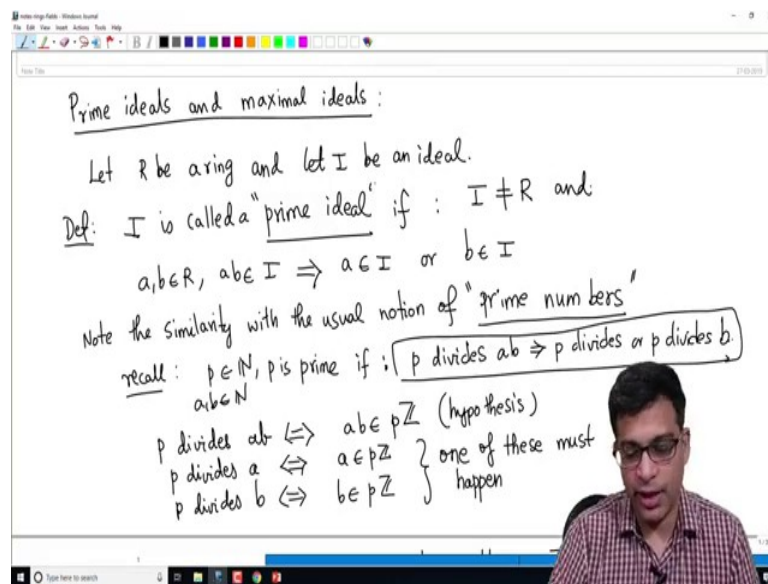 notes-rings-fields - Windows Journal
File Edit View Insert Actions Tools Help
Note Title
27-03-2019
Prime ideals and maximal ideals :
Let R be a ring and let I be an ideal.
Def: I is called a "prime ideal" if : I ≠ R and
a,b∈R, ab∈I ⇒ a∈I or b∈I
Note the similarity with the usual notion of "prime numbers"
recall : p∈ℕ, p is prime if : p divides ab ⇒ p divides or p divides b.
a,b∈ℕ
p divides ab ⇔ ab∈pℤ (hypothesis)
p divides a ⇔ a∈pℤ } one of these must
p divides b ⇔ b∈pℤ } happen
Type here to search